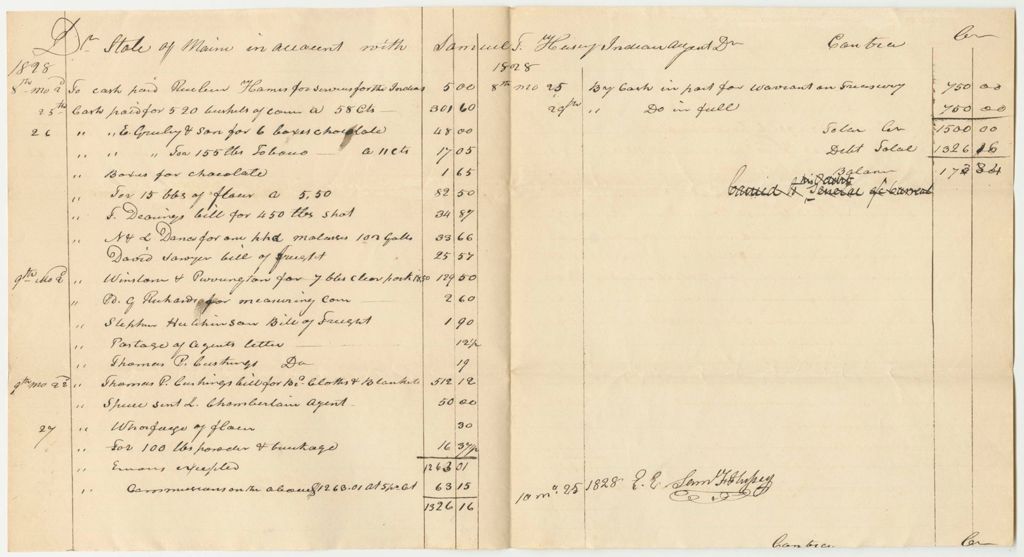 Dr. State of Maine in account with Samuel F. Hussey Indian Agent Dr Contra Cr
1828
8th mo 2d To cash paid Reuben Hames for services for the Indians 5 00
25th Cash paid for 520 bushels of corn a 58 cts 301 60
26 " " E. Greely & Son for 6 boxes chocolate 48 00
" " " For 155 lbs Tobacco a 11 cts 17 05
" Boxes for chocolate 1 65
" For 15 bbs of flour a 5,50 82 50
" T. Deerings bill for 450 lbs shot 34 87
" N & L Dana for one hhd molasses 102 Galls 33 66
David Sawyer bill of freight 25 57
9th mo 2 " Winslow & Purrington for 7 bbs clear pork 18.50 129 50
" Pd. G Richards for measuring corn 2 60
" Stephen Hutchinson Bill of Freight 1 90
" Postage of agents letter 12½
" Thomas P. Cushings Do 19
9th mo 22 " Thomas P. Cushings bill for Bd. Cloths & Blankets 512 12
" Specie sent L. Chamberlain Agent 50 00
27 " Wharfage of flour 30
" For 100 lbs powder & truckage 16 37½
" Errors excepted 1263 01
" Commissions on the above $1263.01 at 5 pr ct 63 15
1326 16
1828
8th mo 25 By Cash in part for Warrant on Treasury 750 00
29th " Do in full 750 00
Total Cr 1500 00
Debt Total 1326 16
Balance 173 84
Carried to General a/c Current
10 mo. 25 1828 E. E. Saml F Hussey
Contra Cr